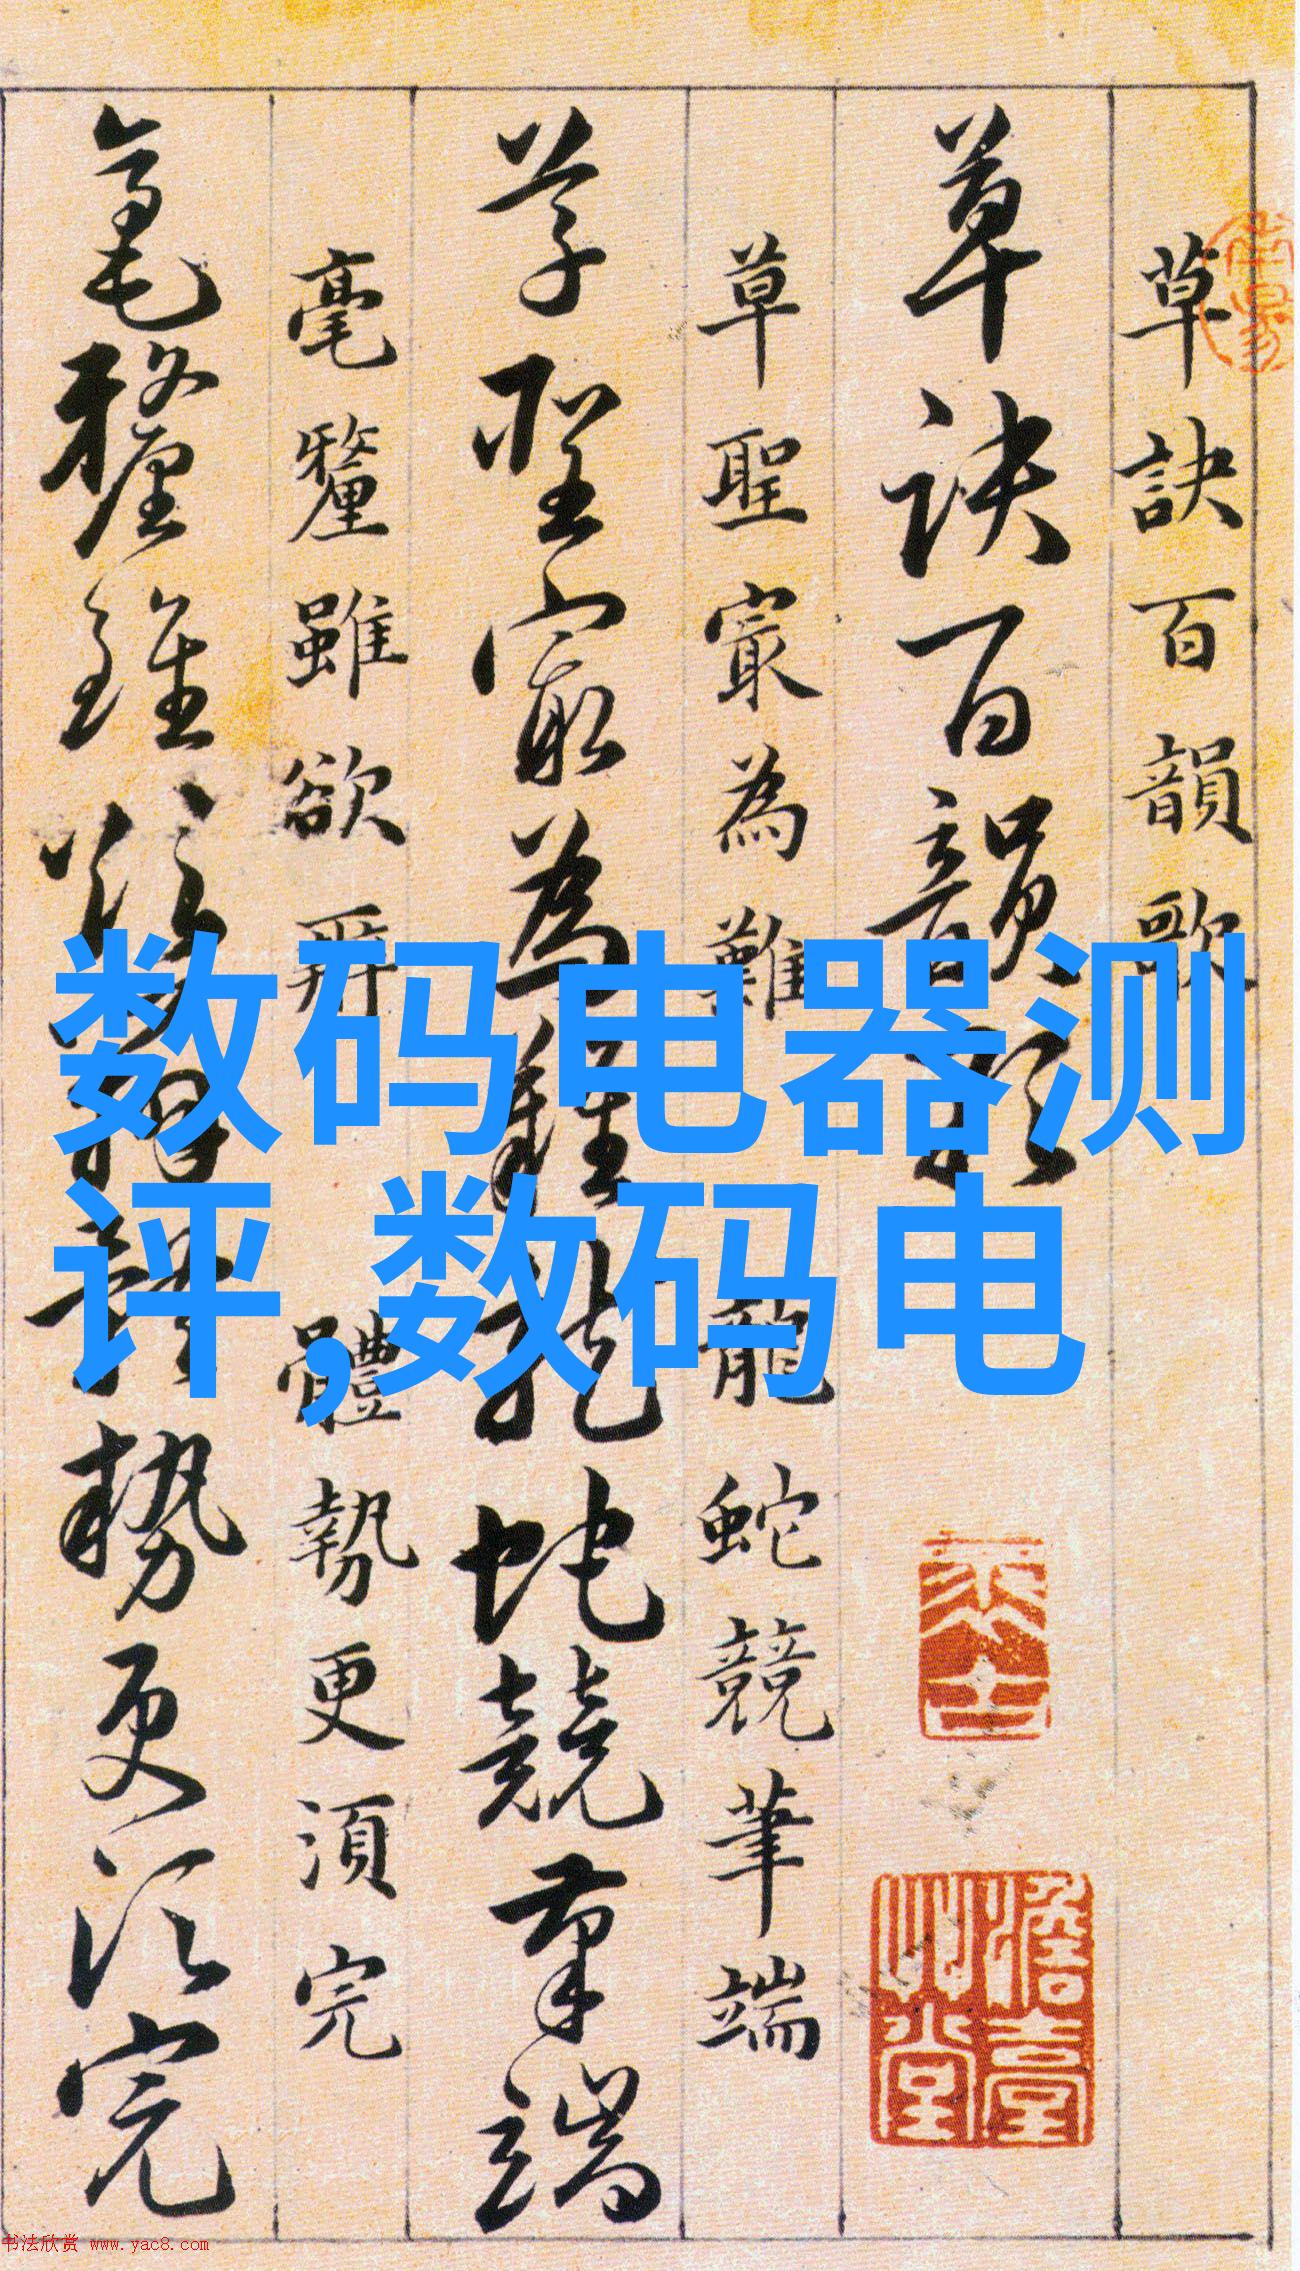 草訣百韻歌
草诀百韻歌
草聖寂為難龍蛇競筆端
草聖寂為難龍蛇競筆端
毫釐雖欲辨體勢更須完
毫釐雖欲辨體勢更須完
数码电器测
评,数码电
书法欣赏 www.yac8.com